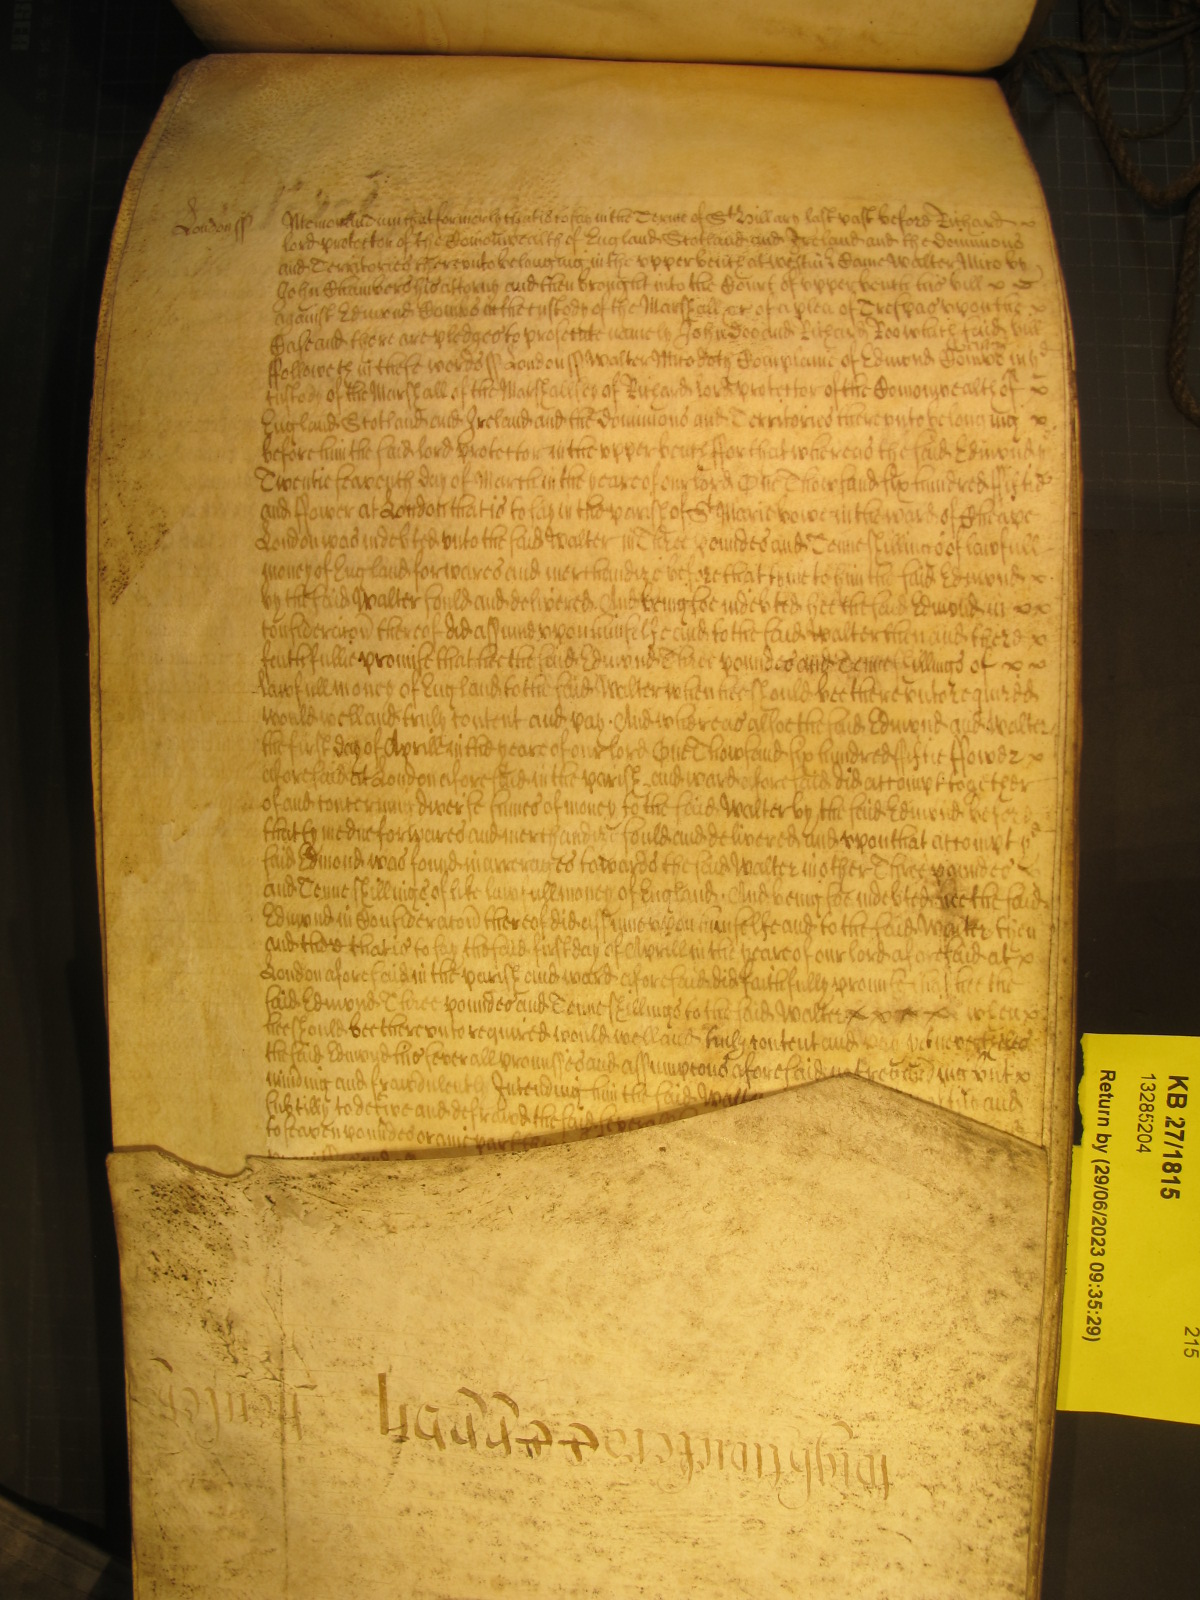 London ss Memorandum that formerly that is to say in the Terme of St Hillary last past before Richard
lord protector of the Comonwealth of England Scotland and Ireland and the Dominions
and Territories thereunto belonging in the upper bench at Westmr Came Walter Mico by
John Chambers his attorny and then brought into the Court of upper bench his bill
against Edmond in the custody of the Marshall &c of a plea of Trespas upon the
Case and there are pledges to prosecute namely John Doo and Richard Roo which said bill
Followeth in these words ss London ss Walter Mico doth Complaine of Edmond in ye
custody of the Marshall of the Marshallsey of Richard lord protector of the Comonwealth of
England Scotland and Ireland and the Dominions and Territories thereunto belonging
before him the said lord protector in the upper bench For that whereas the said Edmond ye
Twentie seaventh day of March in the yeare of our lord One Thowsand six hundred fiftie
and Fower at London that is to say in the parish of St Marie bowe in the ward of Cheape
London was indebted unto the said Walter in Three poundes and Tenne shillings of lawfull
money of England for wares and merchandize before that tyme to him the said Edmond
by the said Walter sould and delivered And being soe indebted hee the said Edmond in
consideracon thereof did assume upon himselfe and to the said Walter then and there
faithfullie promise that hee the said Edmond Three poundes and Tenne shillings of
lawfull money of England to the said Walter when hee should bee thereunto required
would well and truly content and pay And whereas alsoe the said Edmond and Walter
the first day of Aprill in the yeare of our lord One Thowsand six hundred fiftie Fower
aforesaid at London aforesaid in the parish and ward aforesaid did accompt together
of and concerning diverse sumes of money to the said Walter by the said Edmond before
that tyme due for wares and merchandize sould and delivered and upon that accompt ye
said Edmond was found in arrerages towards the said Walter in other Three poundes
and Tenne shillings of like lawfull money of England And being soe indebted hee the said
Edmond in Consideracon thereof did assume upon himselfe and to the said Walter then
and there that is to say the said first day of Aprill in the yeare of our lord aforesaid at
London aforesaid in the parish and ward aforesaid did faithfully promise that hee the
said Edmond Three poundes and Tenne shillings to the said Walter when
hee should bee thereunto required would well and truly content and pay yet neverthelesse
the said Edmond his severall promisses and assumpcons aforesaid not regarding but
minding and fraudulently Intending him the said Walter
subtilly to deceive and defraud the said severall
to seaven poundes or anie part
KB 27/1815
13285204
Return by (29/06/2023 09:35:29)
215